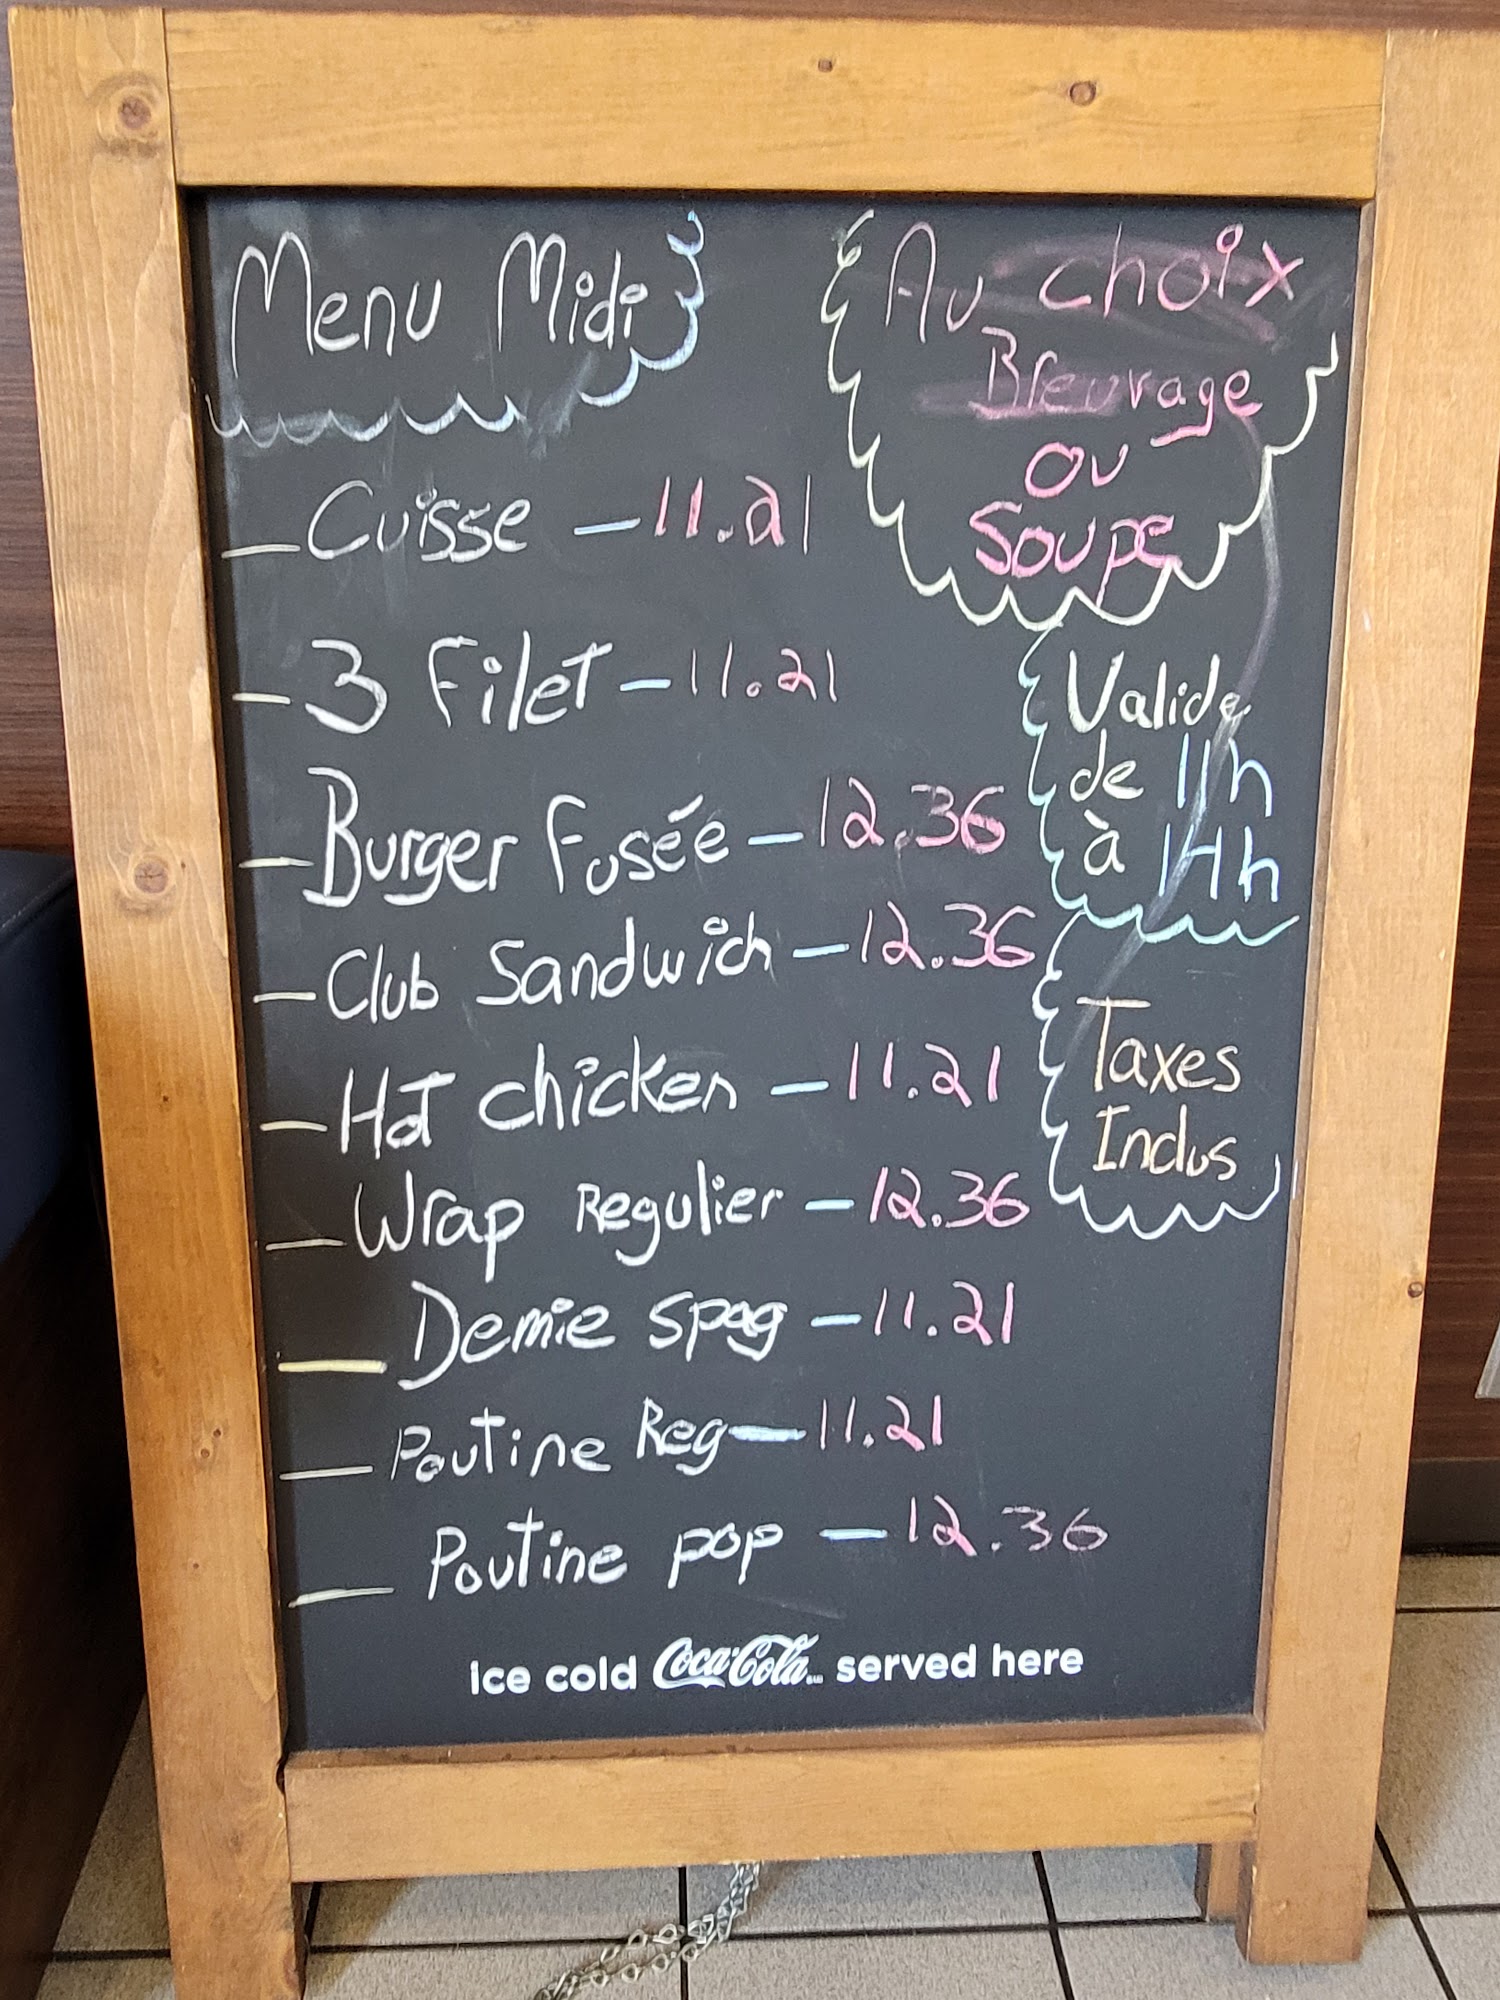 Menu Midi
- Cuisse - 11.21
- 3 Filet - 11.21
- Burger Fusée - 12.36
- Club Sandwich - 12.36
- Hot chicken - 11.21
- Wrap Regulier - 12.36
- Demie spag - 11.21
- Poutine Reg - 11.21
- Poutine pop - 12.36
Au choix
Breuvage
ou
Soupe
Valide
de 11h
à 14h
Taxes
Inclus
ice cold Coca-Cola served here